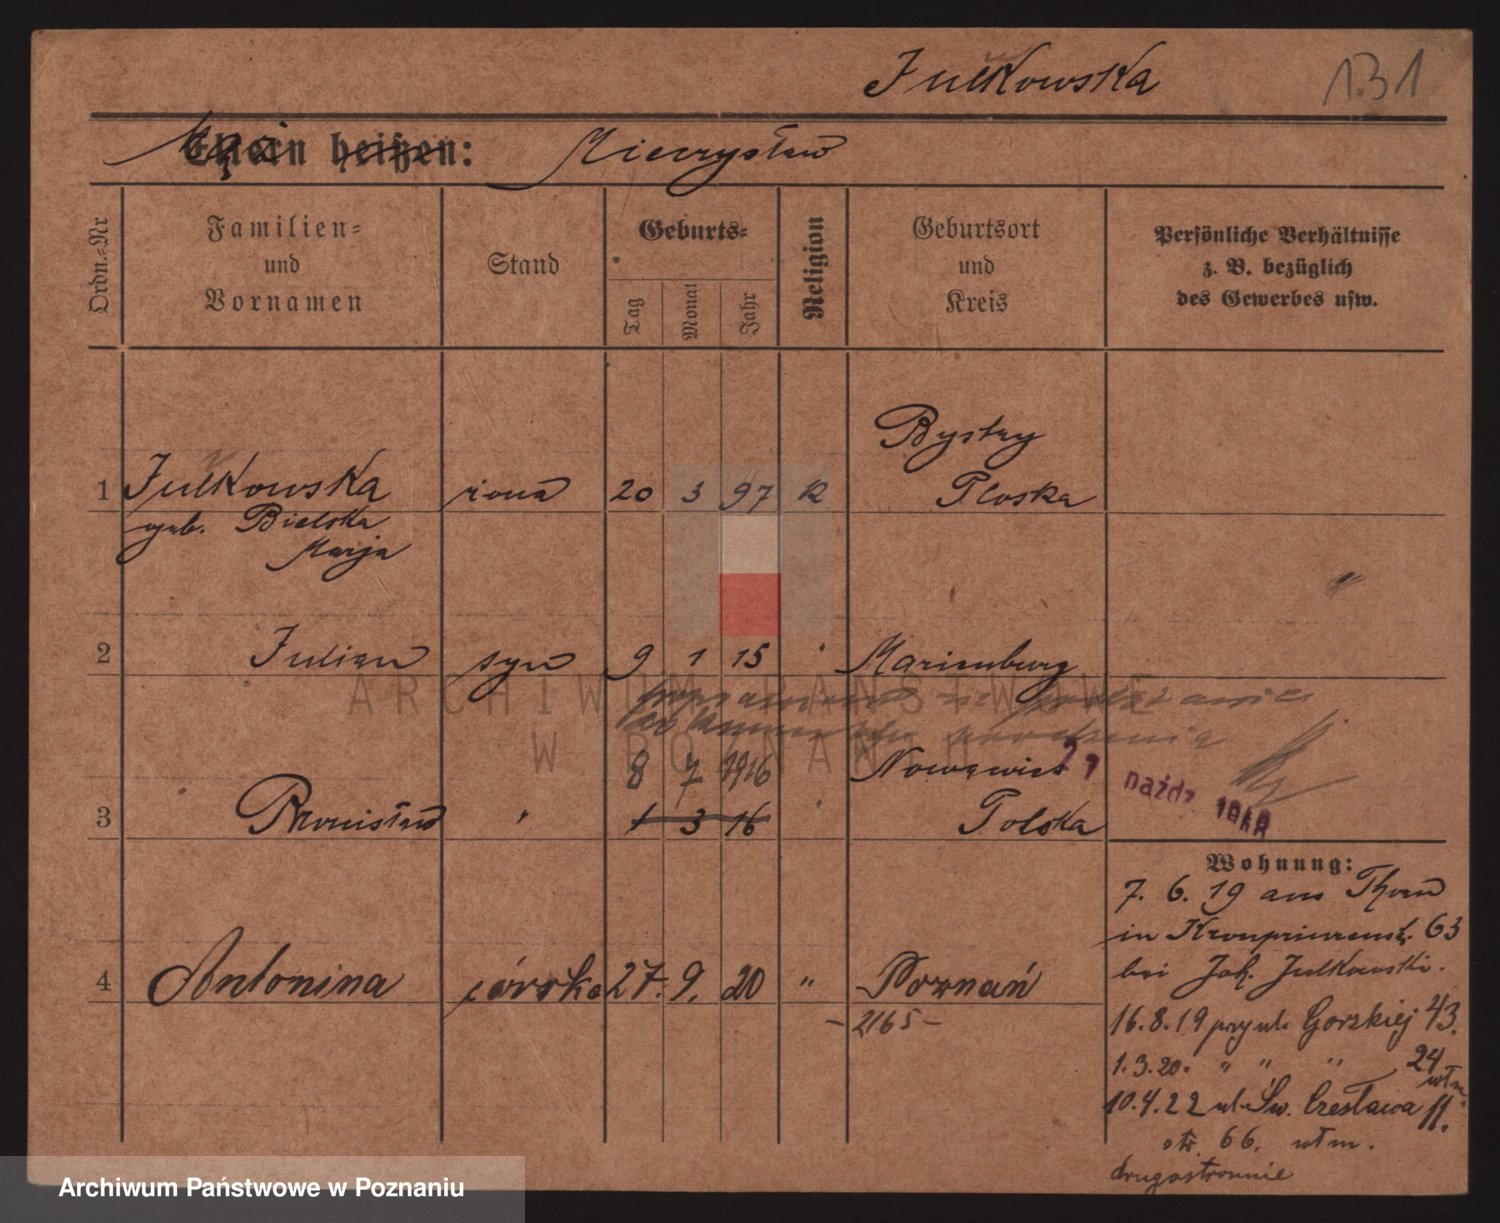 Julkowska
131
Eltern heißen: Mieczysław
Mąż
Ordn.=Nr
Familien=
und
Vornamen
Stand
Geburts=
Tag
Monat
Jahr
Religion
Geburtsort
und
Kreis
Persönliche Verhältnisse
z. B. bezüglich
des Gewerbes usw.
Bystry
1 Julkowska żona 20 3 97 K Polska
geb. Bielska
Marja
"
2 Julian syn 9 1 15 " Marienburg
ARCHIWUM PAŃSTWOWE
W POZNANIU
8 7 1916 Nowawieś
paźdz. 1919
3 Bronisław " 1 3 16 " Polska
Wohnung:
7. 6. 19 aus Thorn
in Kronprinzenst. 63
bei Joh. Julkowski.
4 Antonina córka 27. 9. 20 " Poznań
- 2165 -
16.8.19 przy ul. Gorzkiej 43.
1.3.20. " " " 24
włm.
10.4.22 ul. Św. Czesława 11.
otr. 66. włm.
drugostronnie
Archiwum Państwowe w Poznaniu